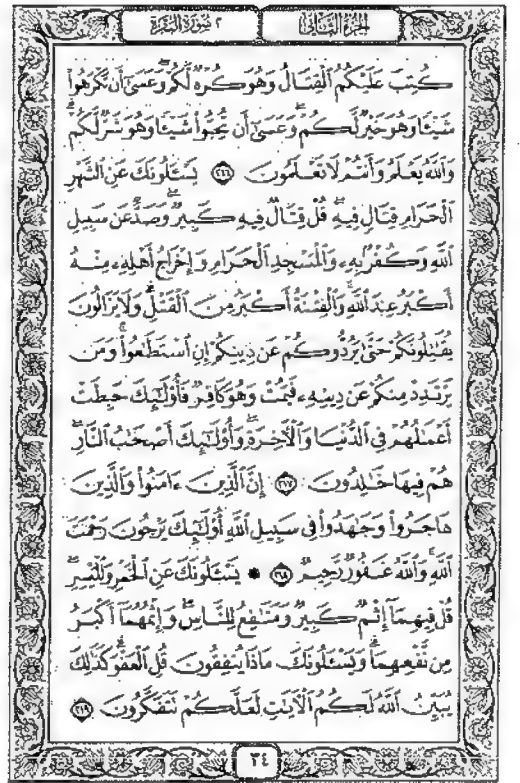 ٢ سورة البقرة
الجزء الثاني
كُتِبَ عَلَيْكُمُ ٱلْقِتَالُ وَهُوَ كُرْهٌ لَّكُمْ ۖ وَعَسَىٰٓ أَن تَكْرَهُوا۟
شَيْـًٔا وَهُوَ خَيْرٌ لَّكُمْ ۖ وَعَسَىٰٓ أَن تُحِبُّوا۟ شَيْـًٔا وَهُوَ شَرٌّ لَّكُمْ ۗ
وَٱللَّهُ يَعْلَمُ وَأَنتُمْ لَا تَعْلَمُونَ ۝٢١٦ يَسْـَٔلُونَكَ عَنِ ٱلشَّهْرِ
ٱلْحَرَامِ قِتَالٍ فِيهِ ۖ قُلْ قِتَالٌ فِيهِ كَبِيرٌ ۖ وَصَدٌّ عَن سَبِيلِ
ٱللَّهِ وَكُفْرٌۢ بِهِۦ وَٱلْمَسْجِدِ ٱلْحَرَامِ وَإِخْرَاجُ أَهْلِهِۦ مِنْهُ
أَكْبَرُ عِندَ ٱللَّهِ ۚ وَٱلْفِتْنَةُ أَكْبَرُ مِنَ ٱلْقَتْلِ ۗ وَلَا يَزَالُونَ
يُقَـٰتِلُونَكُمْ حَتَّىٰ يَرُدُّوكُمْ عَن دِينِكُمْ إِنِ ٱسْتَطَـٰعُوا۟ ۚ وَمَن
يَرْتَدِدْ مِنكُمْ عَن دِينِهِۦ فَيَمُتْ وَهُوَ كَافِرٌ فَأُو۟لَـٰٓئِكَ حَبِطَتْ
أَعْمَـٰلُهُمْ فِى ٱلدُّنْيَا وَٱلْـَٔاخِرَةِ ۖ وَأُو۟لَـٰٓئِكَ أَصْحَـٰبُ ٱلنَّارِ ۖ
هُمْ فِيهَا خَـٰلِدُونَ ۝٢١٧ إِنَّ ٱلَّذِينَ ءَامَنُوا۟ وَٱلَّذِينَ
هَاجَرُوا۟ وَجَـٰهَدُوا۟ فِى سَبِيلِ ٱللَّهِ أُو۟لَـٰٓئِكَ يَرْجُونَ رَحْمَتَ
ٱللَّهِ ۚ وَٱللَّهُ غَفُورٌ رَّحِيمٌ ۝٢١٨ ۞ يَسْـَٔلُونَكَ عَنِ ٱلْخَمْرِ وَٱلْمَيْسِرِ ۖ
قُلْ فِيهِمَآ إِثْمٌ كَبِيرٌ وَمَنَـٰفِعُ لِلنَّاسِ وَإِثْمُهُمَآ أَكْبَرُ
مِن نَّفْعِهِمَا ۗ وَيَسْـَٔلُونَكَ مَاذَا يُنفِقُونَ قُلِ ٱلْعَفْوَ ۗ كَذَٰلِكَ
يُبَيِّنُ ٱللَّهُ لَكُمُ ٱلْـَٔايَـٰتِ لَعَلَّكُمْ تَتَفَكَّرُونَ ۝٢١٩
٣٤